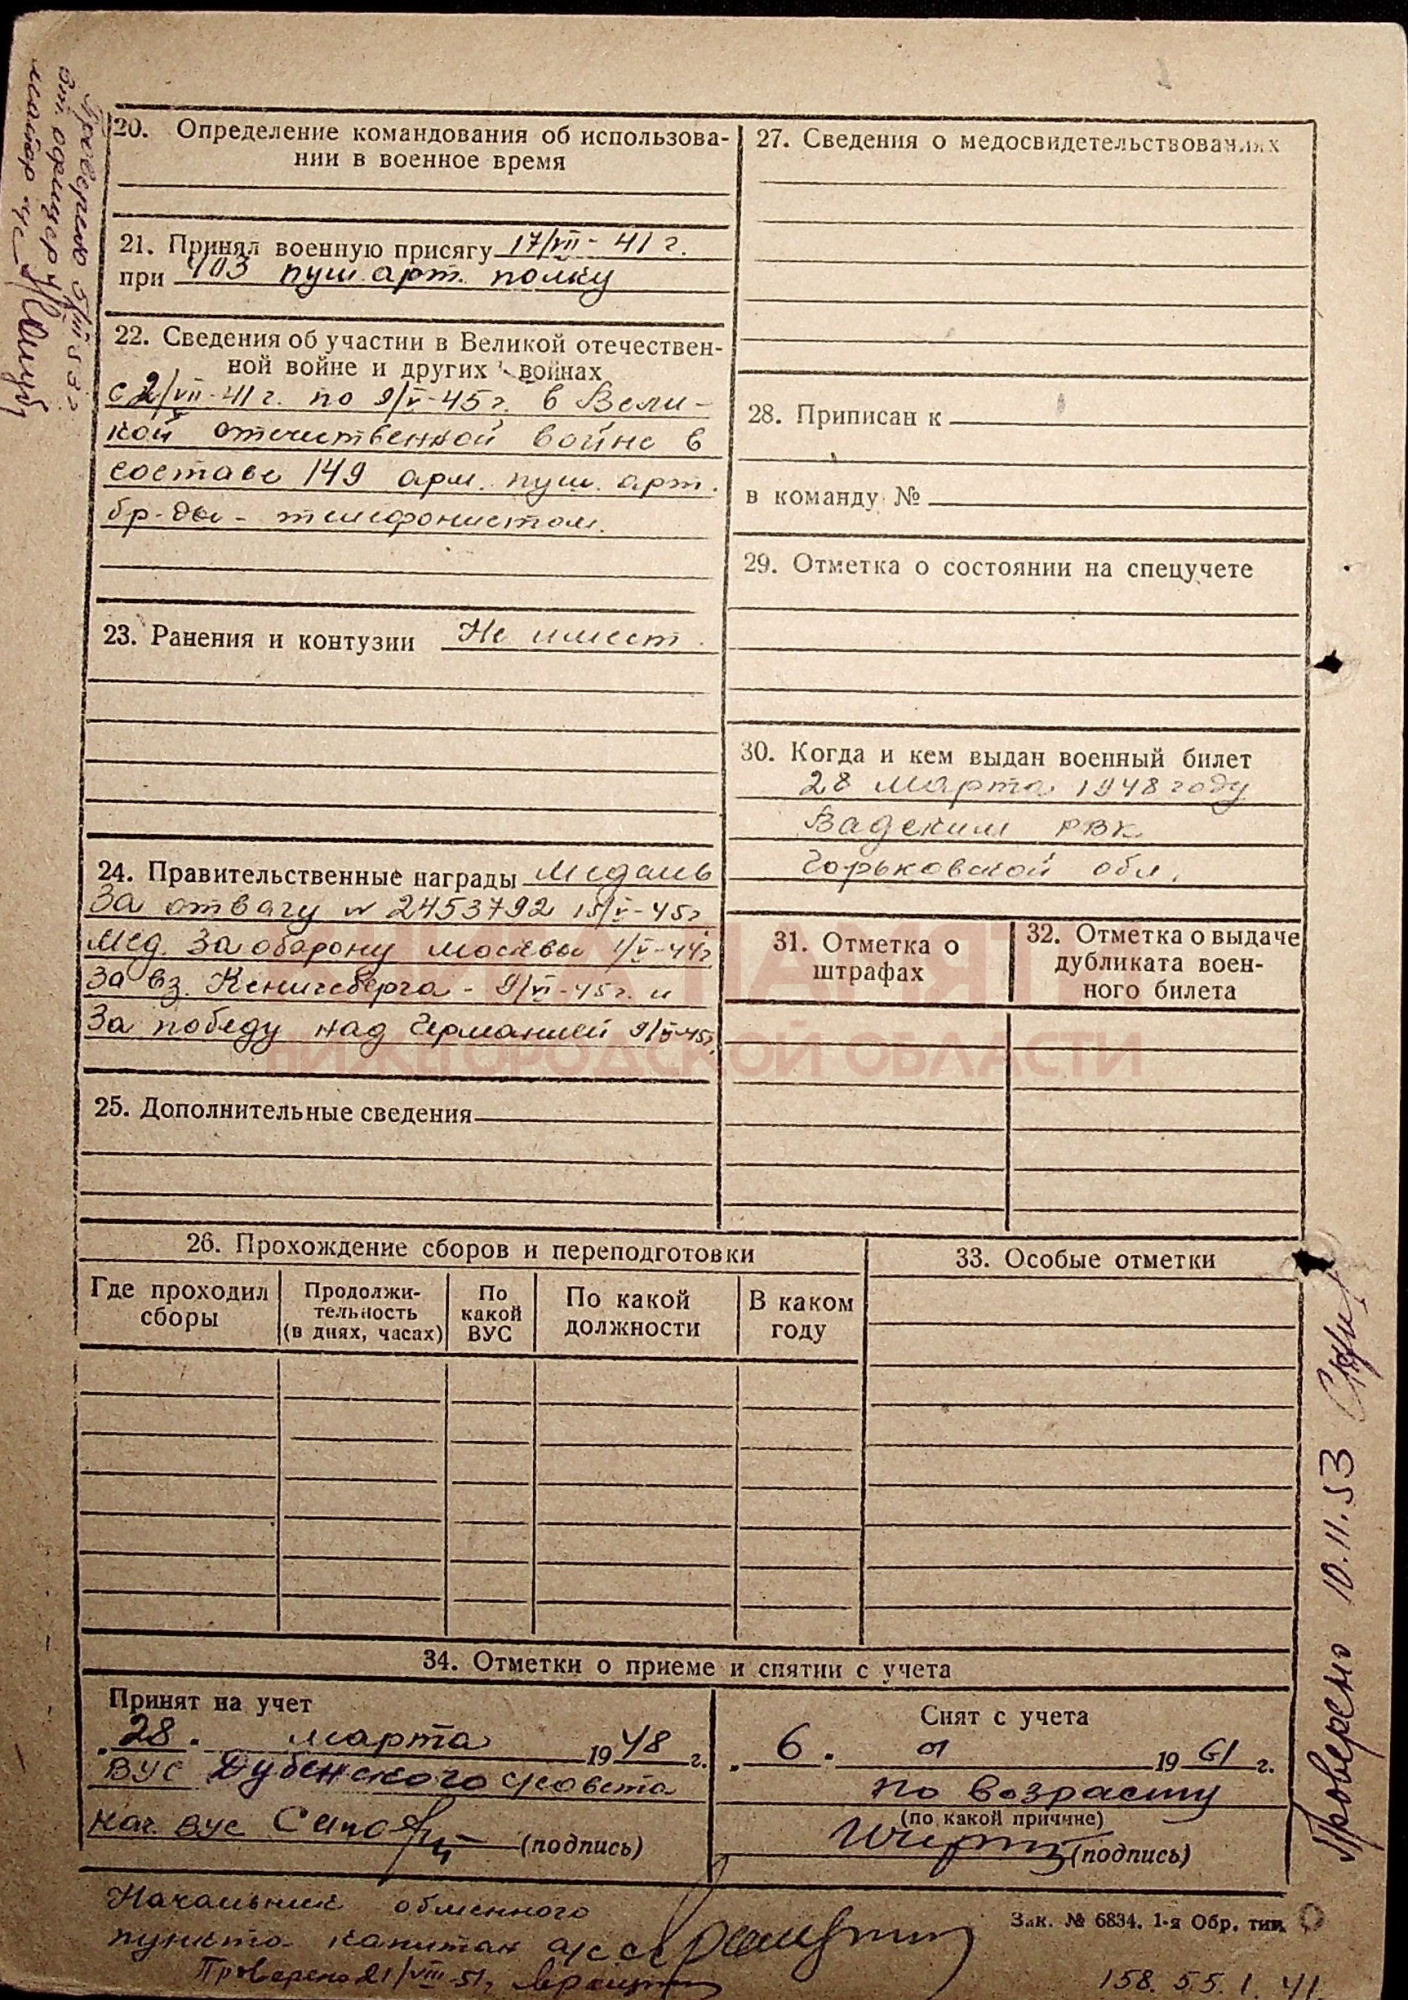 Проверено 5/III 53 г
20. Определение командования об использова-
нии в военное время
21. Принял военную присягу 17/VII - 41 г.
при 403 пуш. арт. полку
22. Сведения об участии в Великой отечествен-
ной войне и других войнах
с 2/VII-41 г. по 9/V-45 г. в Вели-
кой отечественной войне в
составе 149 арм. пуш. арт.
бр-ды - телефонистом.
23. Ранения и контузии Не имеет.
24. Правительственные награды Медаль
За отвагу № 2453792 15/V-45 г
Мед. За оборону Москвы 1/V-44 г
За вз. Кенигсберга - 9/VI-45 г. и
За победу над Германией 9/V-45 г.
25. Дополнительные сведения
27. Сведения о медосвидетельствованиях
28. Приписан к
в команду №
29. Отметка о состоянии на спецучете
30. Когда и кем выдан военный билет
28 марта 1948 году
Вадским РВК
Горьковской обл.
31. Отметка о
штрафах
32. Отметка о выдаче
дубликата воен-
ного билета
КНИГА ПАМЯТИ
НИЖЕГОРОДСКОЙ ОБЛАСТИ
26. Прохождение сборов и переподготовки
Где проходил
сборы
Продолжи-
тельность
(в днях, часах)
По
какой
ВУС
По какой
должности
В каком
году
33. Особые отметки
34. Отметки о приеме и снятии с учета
Принят на учет
28. марта 1948 г.
ВУС Дубенского с/совета
нач. ВУС (подпись)
Снят с учета
6. 1961 г.
по возрасту
(по какой причине)
(подпись)
Проверено 10.11.53
Начальник обменного
пункта капитан а/с
Проверено 21/VIII-51 г.
Зак. № 6834. 1-я Обр. тип.
158. 55. 1. 41.